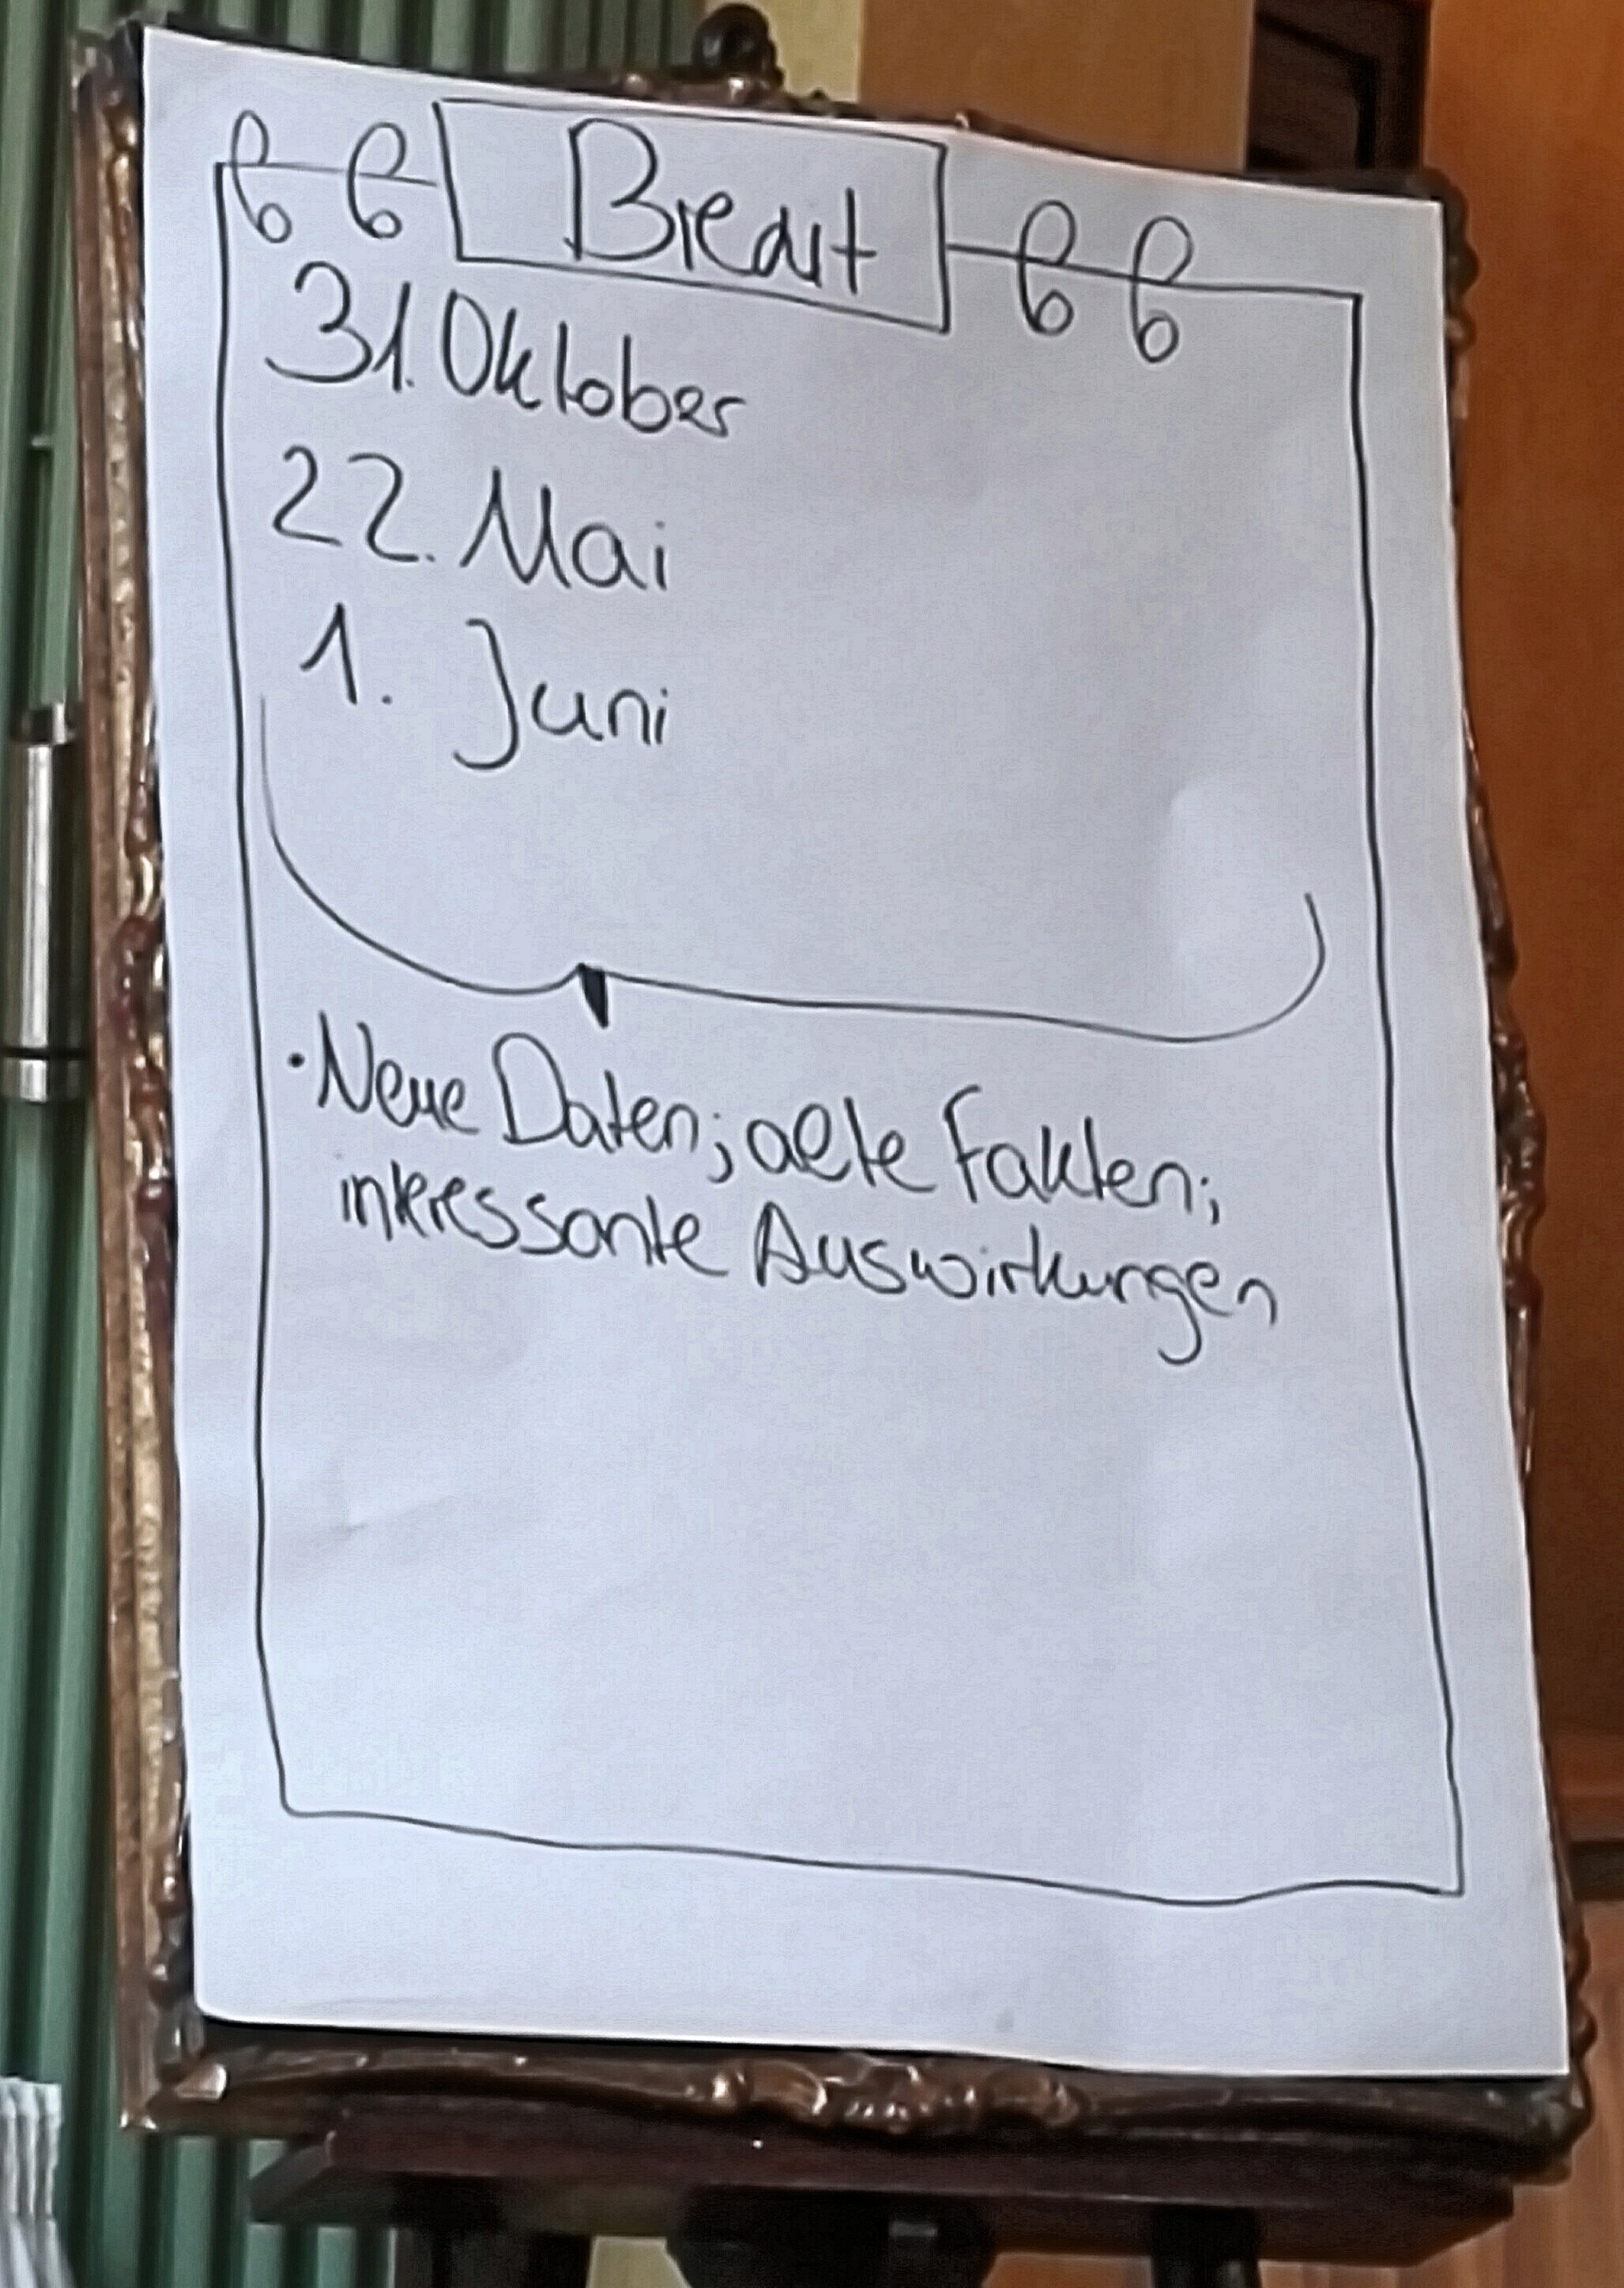 31. Oktober
22. Mai
1. Juni
· Neue Daten; alte Fakten;
interessante Auswirkungen